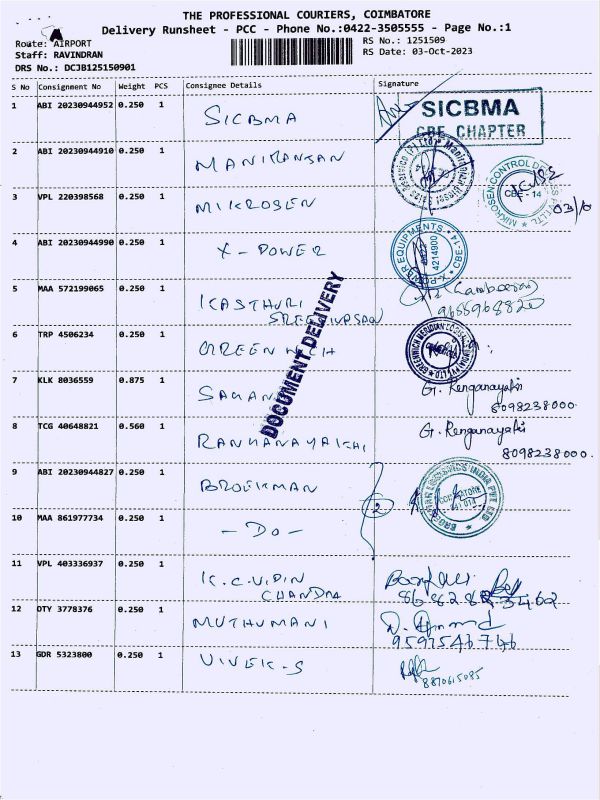 THE PROFESSIONAL COURIERS, COIMBATORE
Delivery Runsheet - PCC - Phone No.:0422-3505555 - Page No.:1
Route: AIRPORT
RS No.: 1251509
Staff: RAVINDRAN
RS Date: 03-Oct-2023
DRS No.: DCJB125150901
S No Consignment No Weight PCS Consignee Details Signature
1 ABI 20230944952 0.250 1 SICBMA
SICBMA
CBE CHAPTER
2 ABI 20230944910 0.250 1
3 VPL 220398568 0.250 1 MIKROSEN
MIKROSEN CONTROL
CBE - 14
4 ABI 20230944990 0.250 1 X-POWER
X-POWER EQUIPMENTS
4214900
CBE-14
5 MAA 572199065 0.250 1 KASTHURI
SREENIVASAN
9655968820
DOCUMENT DELIVERY
6 TRP 4506234 0.250 1 GREENWICH
GREENWICH MERIDIAN
7 KLK 8036559 0.875 1
G. Renganayaki
8098238000.
8 TCG 40648821 0.560 1
G. Renganayaki
8098238000.
9 ABI 20230944827 0.250 1 BROEKMAN
BROEKMAN LOGISTICS INDIA PVT LTD
COIMBATORE
2
10 MAA 861977734 0.250 1 - DO -
11 VPL 403336937 0.250 1 K.C.VIPIN
CHANDRA
12 OTY 3778376 0.250 1 MUTHUMANI
13 GDR 5323800 0.250 1 VIVEK-S
8870615085